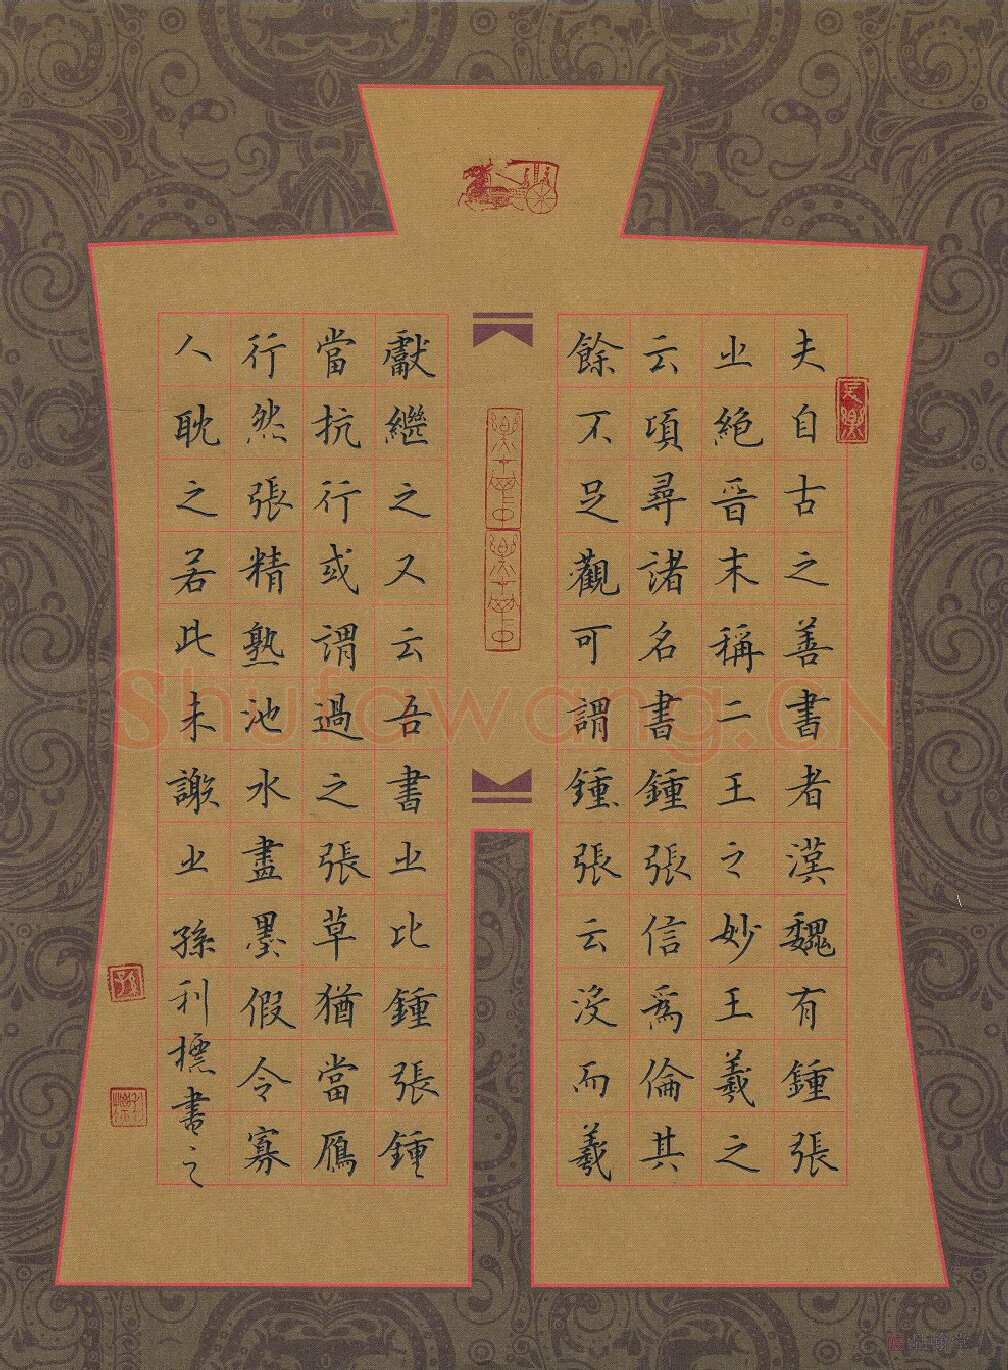 夫自古之善書者漢魏有鍾張
之絕晉末稱二王之妙王羲之
云頃尋諸名書鍾張信爲倫其
餘不足觀可謂鍾張云沒而羲
獻繼之又云吾書之比鍾張鍾
當抗行或謂過之張草猶當鴈
行然張精熟池水盡墨假令寡
人耽之若此未謝之孫利標書之
Shufawang.CN